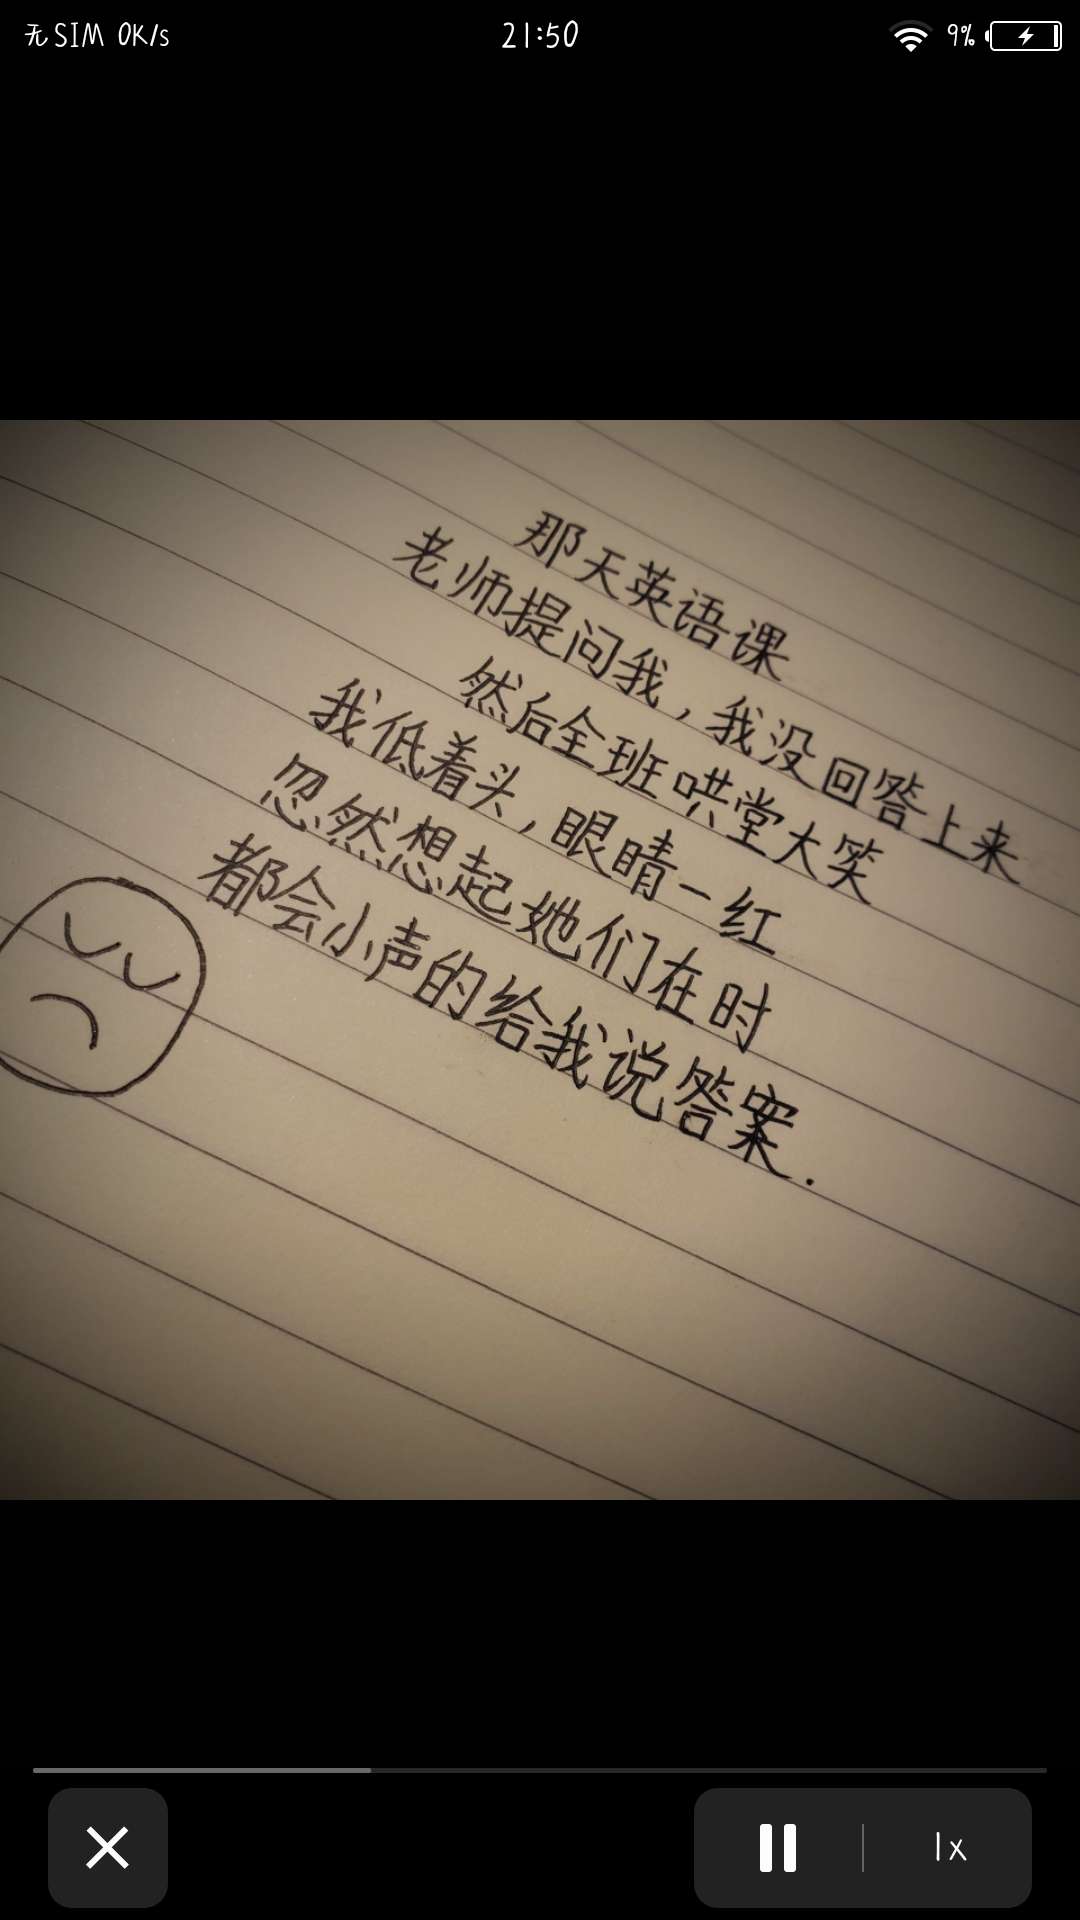 无SIM 0K/s 21:50 9%
那天英语课
老师提问我，我没回答上来
然后全班哄堂大笑
我低着头，眼睛一红
忽然想起她们在时
都会小声的给我说答案.
1x